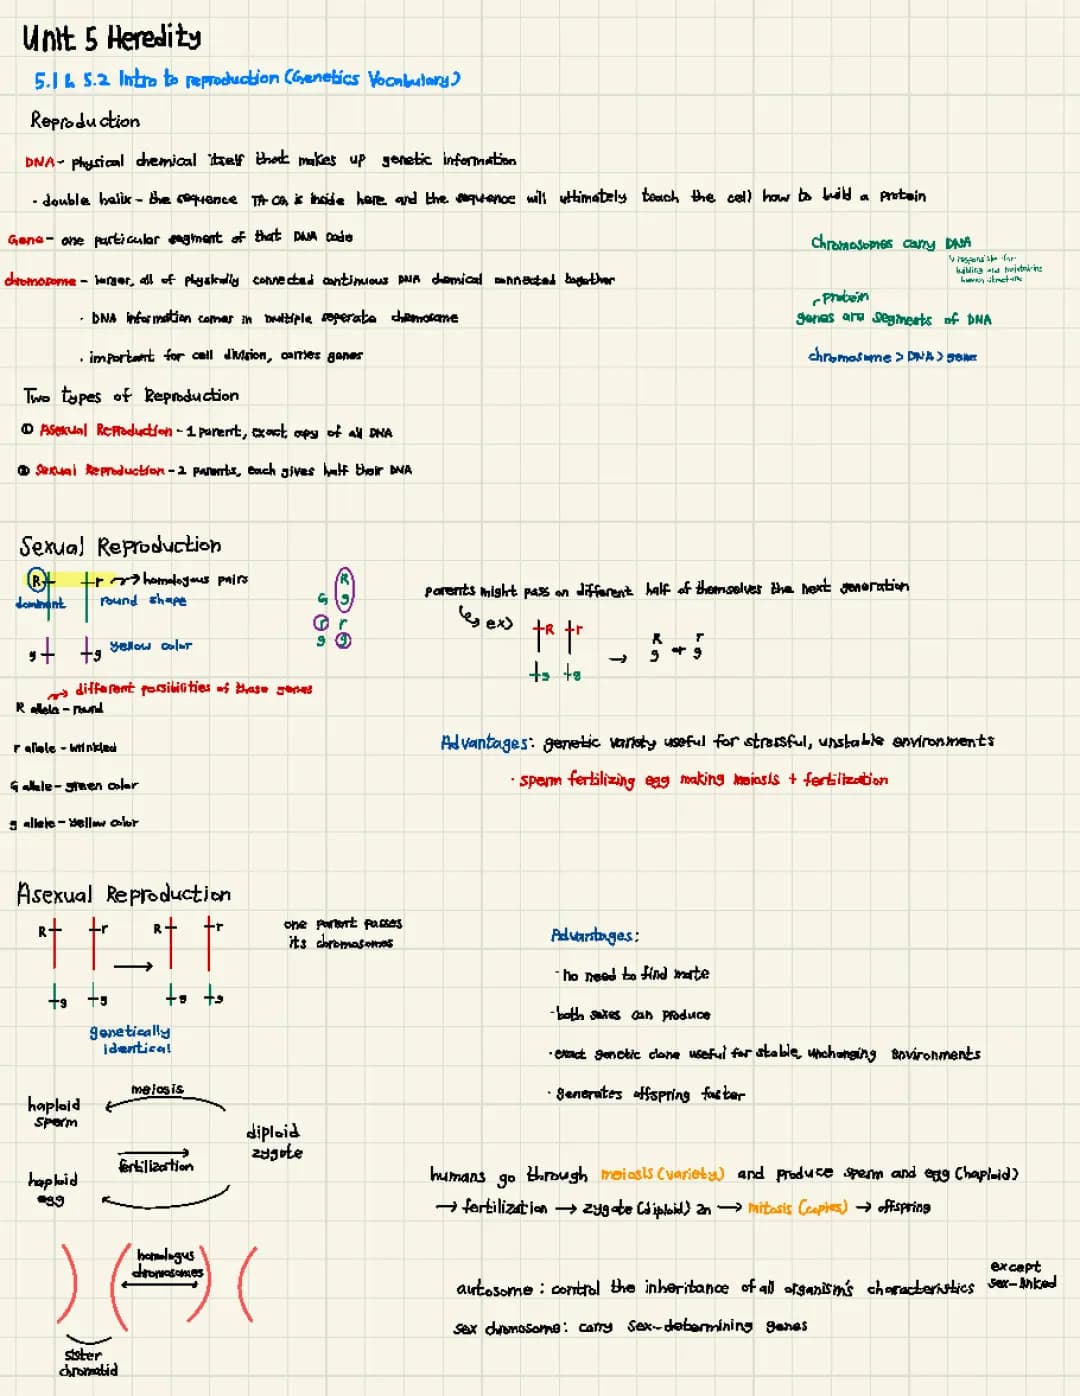 Unit 5 Heredity
5.1 & 5.2 Intro to reproduction (Genetics Vocabulary)
Reproduction
DNA - physical chemical itself that makes up genetic information
· double helix - the sequence TA CG is inside here and the sequence will ultimately teach the cell how to build a protein
Gene - one particular segment of that DNA code
chromosome - larger, all of physically connected continuous DNA chemical connected together
· DNA information comes in multiple seperate chromosome
· important for cell division, carries genes
Chromosomes carry DNA
responsible for
building and maintaining
human structure
protein
genes are segments of DNA
chromosome > DNA > gene
Two types of Reproduction
① Asexual Reproduction - 1 parent, exact copy of all DNA
② Sexual Reproduction - 2 parents, each gives half their DNA
Sexual Reproduction
R r → homologous pairs
dominant round shape
g g yellow color
G R
g
r r
g g
parents might pass on different half of themselves the next generation
ex) R r → R or r
g g g g
→ different possibilities of those genes
R allele - round
r allele - wrinkled
G allele - green color
g allele - yellow color
Advantages: genetic variety useful for stressful, unstable environments
· sperm fertilizing egg making meiosis + fertilization
Asexual Reproduction
R r → R r
g g g g
genetically
identical
one parent passes
its chromosomes
Advantages:
· no need to find mate
· both sexes can produce
· exact genetic clone useful for stable, unchanging environments
· generates offspring faster
meiosis
haploid
sperm
diploid
zygote
fertilization
haploid
egg
humans go through meiosis (variety) and produce sperm and egg (haploid)
→ fertilization → zygote (diploid) 2n → mitosis (copies) → offspring
homologus
chromosomes
sister
chromatid
autosome : control the inheritance of all organism's characteristics except
sex-linked
sex chromosome: carry sex-determining genes